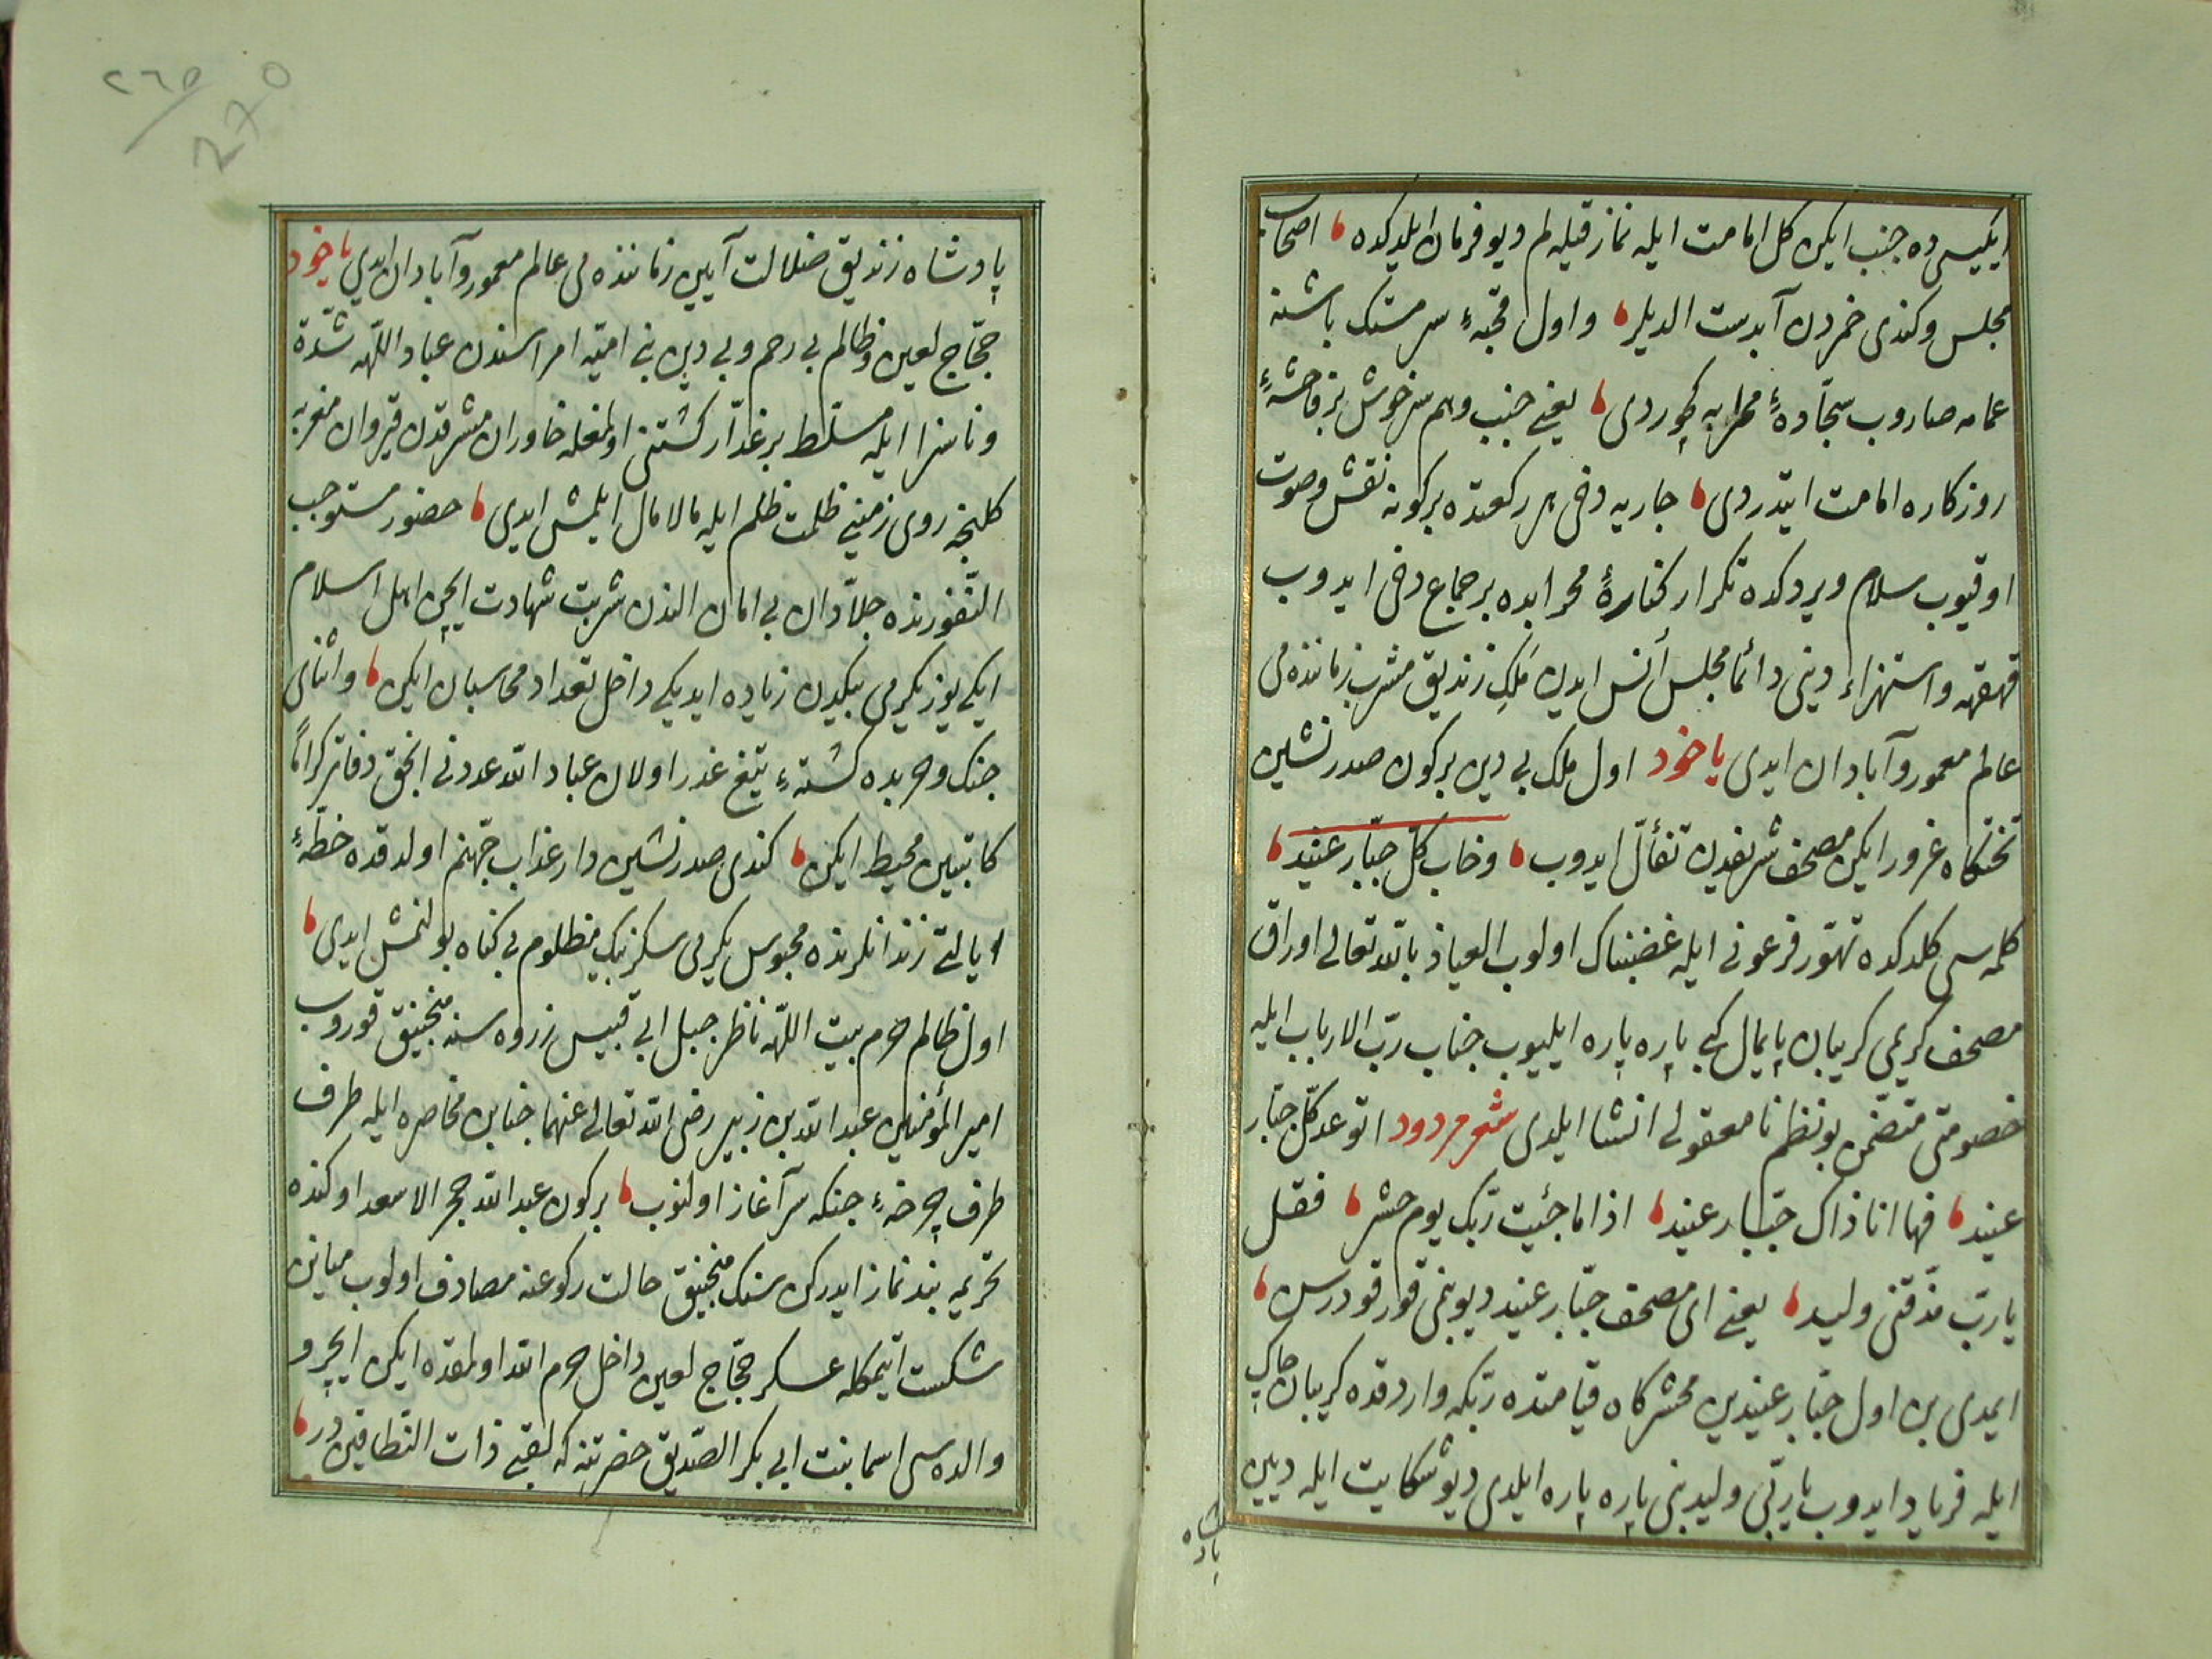 ایکیسی ده جنب ایکن کل امامت ایله نماز قیله لم دیو فرمان ایلدکده اصحاب
مجلس و کندی خمردن آبدست الدیلر و اول قحبهٔ سرمستک باشنه
عمامه صاروب سجّادهٔ محرابه کچوردی یعنی جنب و هم سرخوش بر فاحشهٔ
روزکاره امامت ایتدردی جاریه دخی هر رکعتده بر کونه نقش و صوت
اوقیوب سلام ویردکده تکرار کنارهٔ محرابده بر جماع دخی ایدوب
قهقهه و استهزاء دینی دائما مجلس أنس ایدن مَلِکِ زندیق مشرب زماننده می
عالم معمور و آبادان ایدی یاخود اول ملک بی دین بر کون صدرنشین
تختکاه غرور ایکن مصحف شریفدن تفأّل ایدوب وخاب کل جبّار عنید
کلمه سی کلدکده تهوّر فرعونی ایله غضبناک اولوب العیاذ بالله تعالی اوراق
مصحف کریمی کریبان پایمال کبی پاره پاره ایلیوب جناب ربّ الارباب ایله
خصومتی متضمّن بو نظم نامعقولی انشا ایلدی شعر مردود اتوعد کلّ جبّار
عنید فها انا ذاک جبّار عنید اذا ما جئیت ربّک یوم حشر فقل
یا ربّ مذّقنی ولید یعنی ای مصحف جبّار عنید دیو بنی قورقودرسن
ایمدی بن اول جبّار عنیدین محشرکاه قیامتده ربّکه واردقده کریبان چاک
ایله فریاد ایدوب یا ربّی ولید بنی پاره پاره ایلدی دیو شکایت ایله دیین
پادشاه
پادشاه زندیق ضلالت آیین زماننده می عالم معمور و آبادان ایدی یاخود
حجّاج لعین و ظالم بی رحم و بی دین بنی امیّه امراسندن عباد اللّه شدّة
و ناسزا ایله مسلّط بر غدّار کشتنی اولمغله خاوران مشرقدن قیروان مغربه
کلنجه روی زمینی ظلمت ظلم ایله مالامال ایلمش ایدی حضور مستوجب
النّفورنده جلاّدان بی امان الندن شربت شهادت ایچن اهل اسلام
ایکی یوز یکرمی بیکدن زیاده ایدیکی داخل تعداد محاسبان ایکن و اثنای
جنک و حربده کشتهٔ تیغ غدر اولان عباد الله عددنی انجق دفاتر کراماً
کاتبین محیط ایکن کندی صدرنشین دار عذاب جهنّم اولدقده خطّهٔ
ایالتی زندانلرنده محبوس یکرمی سکز بیک مظلوم بی کناه بولنمش ایدی
اول ظالم حرم بیت اللّه ناظر جبل ابی قبیس ذروه سنه منجنیق قوروب
امیر المؤمنین عبد الله بن زبیر رضی الله تعالی عنهما جنابن محاصره ایله طرف
طرف چرخهٔ جنکه سرآغاز اولنوب بر کون عبد الله حجر الاسعد اوکنده
تحریمه بند نماز ایدرکن سنک منجنیق حالت رکوعنه مصادف اولوب میانن
شکست ایتمکله عسکر حجّاج لعین داخل حرم الله اولمقده ایکن ایچرو
والده سی اسما بنت ابی بکر الصّدیق حضرتنه که لقبی ذات النّطاقین در
٢٦٥
270